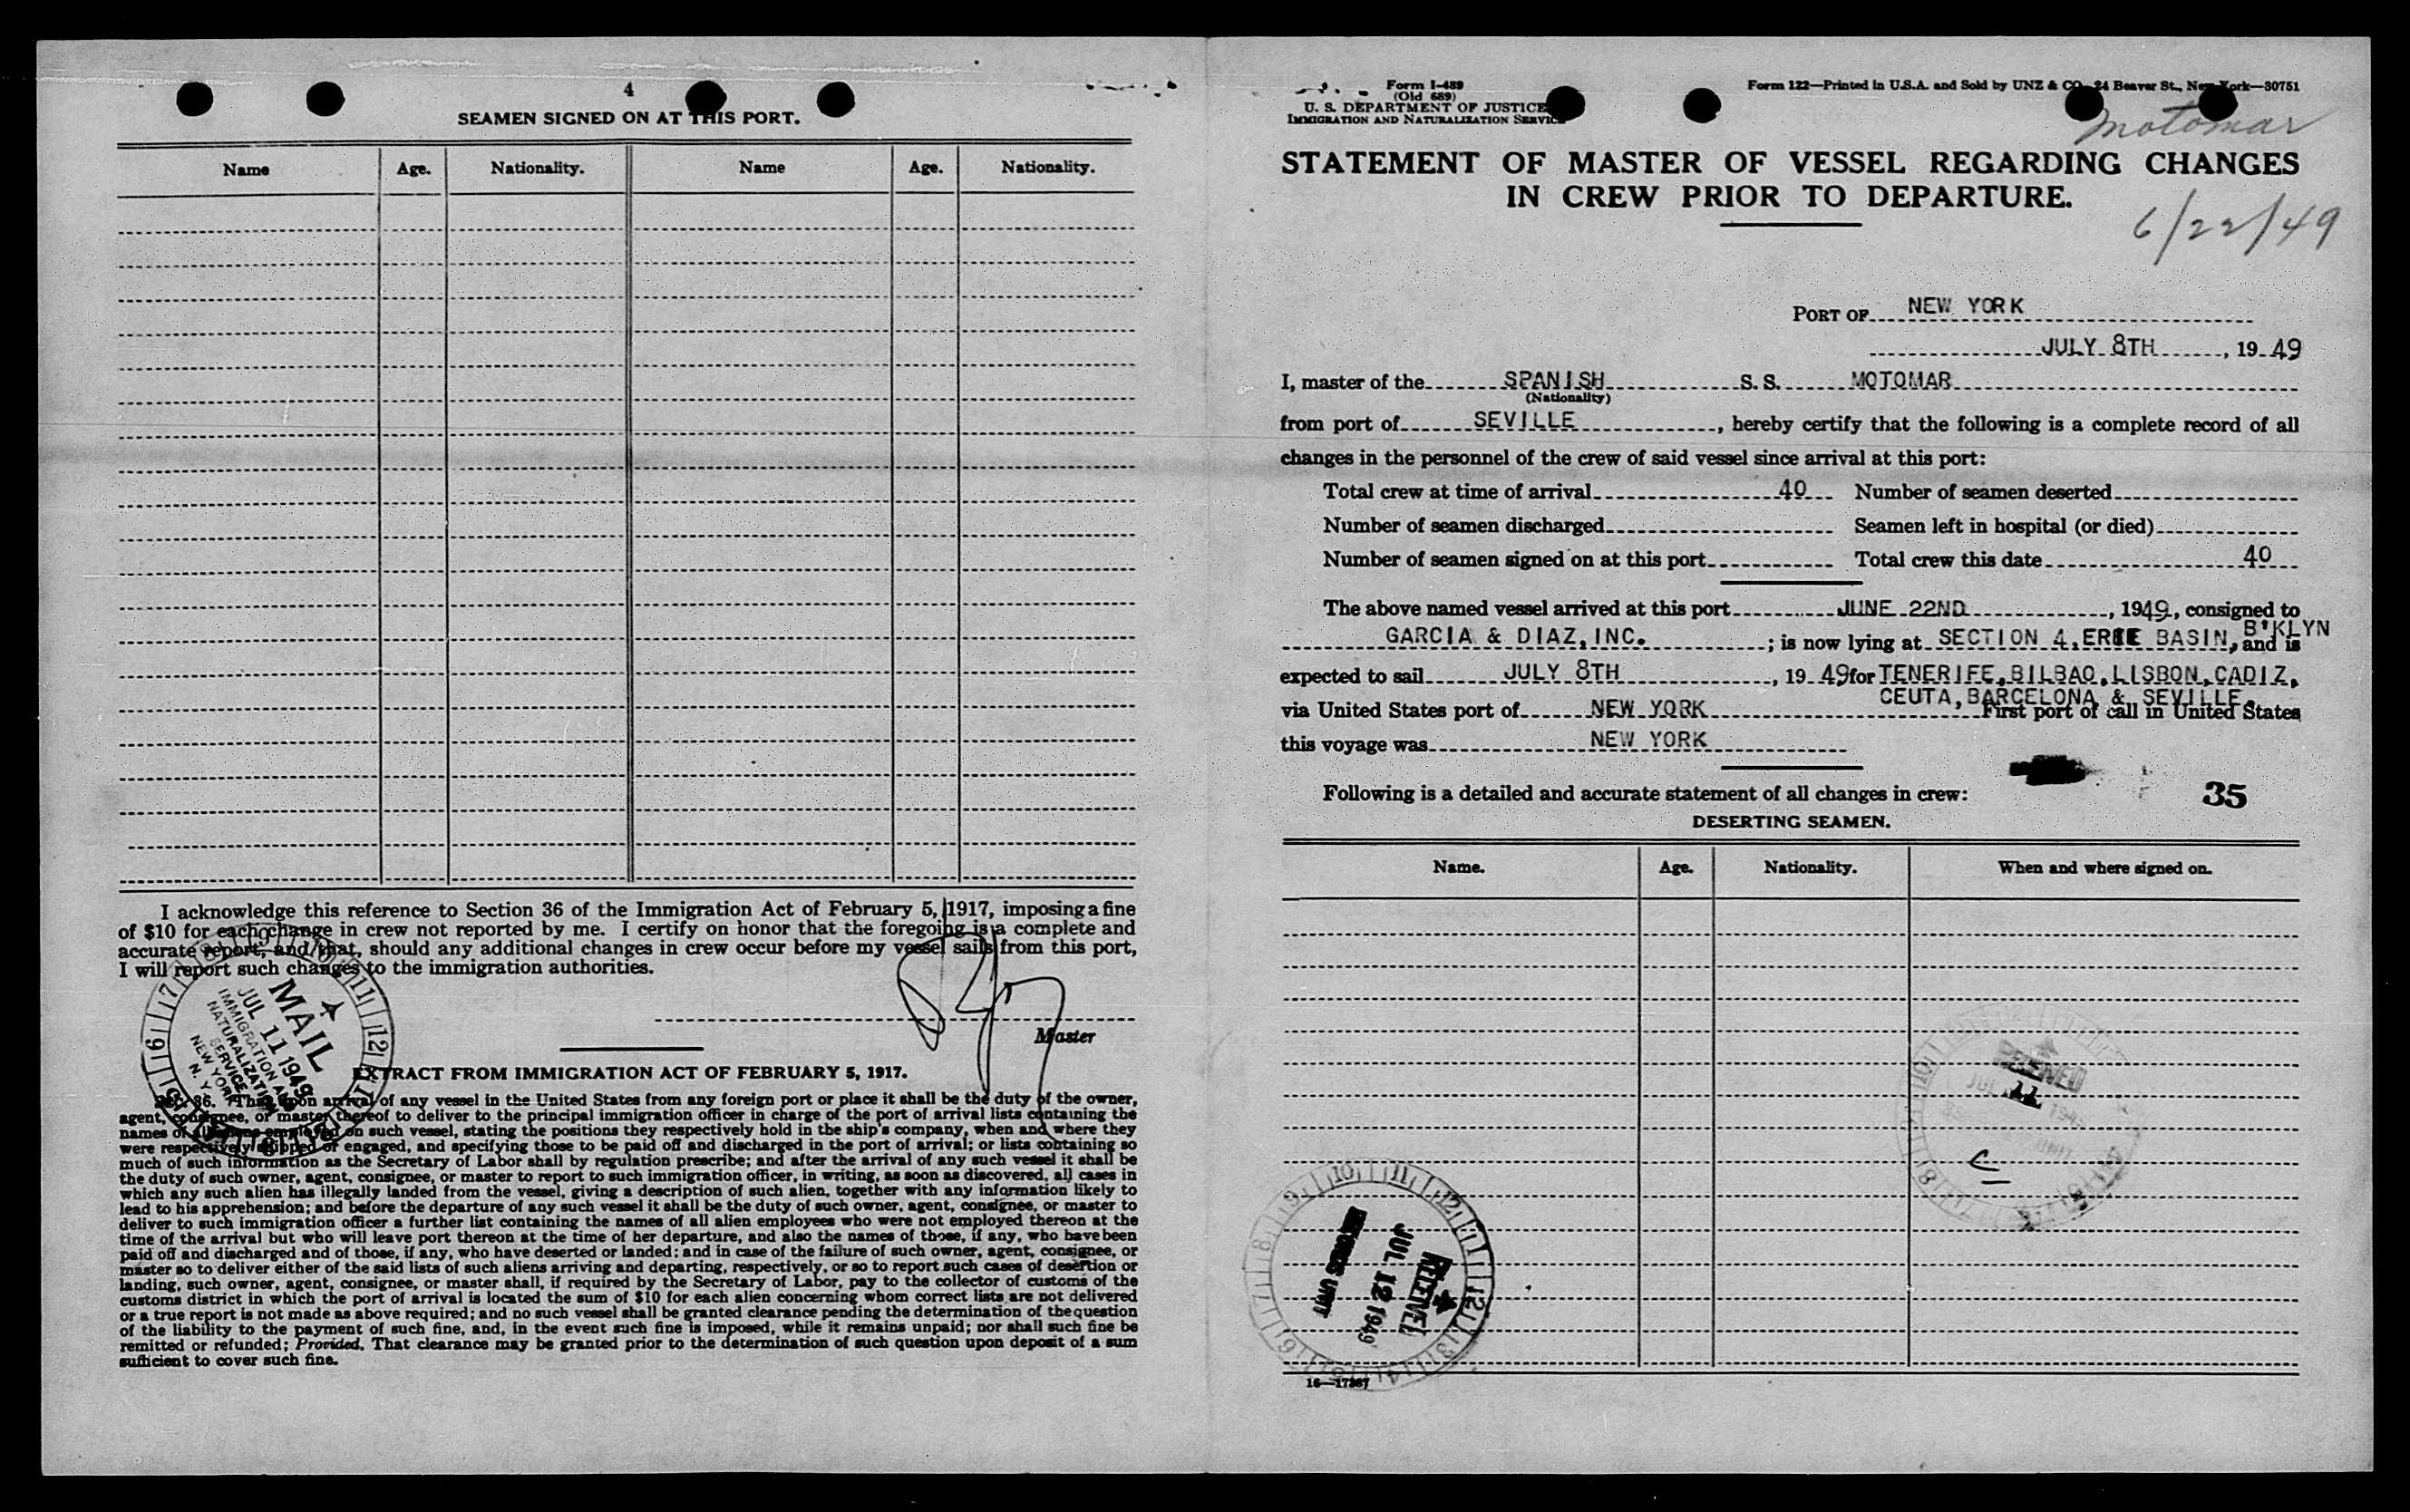 4
SEAMEN SIGNED ON AT THIS PORT.
Name Age. Nationality. Name Age. Nationality.
I acknowledge this reference to Section 36 of the Immigration Act of February 5, 1917, imposing a fine
of $10 for each change in crew not reported by me. I certify on honor that the foregoing is a complete and
accurate report, and that, should any additional changes in crew occur before my vessel sails from this port,
I will report such changes to the immigration authorities.
Master
MAIL
JUL 11 1949
IMMIGRATION AND
NATURALIZATION
SERVICE
NEW YORK
N. Y.
EXTRACT FROM IMMIGRATION ACT OF FEBRUARY 5, 1917.
Sec. 36. That upon arrival of any vessel in the United States from any foreign port or place it shall be the duty of the owner,
agent, consignee, or master thereof to deliver to the principal immigration officer in charge of the port of arrival lists containing the
names of all aliens employed on such vessel, stating the positions they respectively hold in the ship's company, when and where they
were respectively shipped or engaged, and specifying those to be paid off and discharged in the port of arrival; or lists containing so
much of such information as the Secretary of Labor shall by regulation prescribe; and after the arrival of any such vessel it shall be
the duty of such owner, agent, consignee, or master to report to such immigration officer, in writing, as soon as discovered, all cases in
which any such alien has illegally landed from the vessel, giving a description of such alien, together with any information likely to
lead to his apprehension; and before the departure of any such vessel it shall be the duty of such owner, agent, consignee, or master to
deliver to such immigration officer a further list containing the names of all alien employees who were not employed thereon at the
time of the arrival but who will leave port thereon at the time of her departure, and also the names of those, if any, who have been
paid off and discharged and of those, if any, who have deserted or landed; and in case of the failure of such owner, agent, consignee, or
master so to deliver either of the said lists of such aliens arriving and departing, respectively, or so to report such cases of desertion or
landing, such owner, agent, consignee, or master shall, if required by the Secretary of Labor, pay to the collector of customs of the
customs district in which the port of arrival is located the sum of $10 for each alien concerning whom correct lists are not delivered
or a true report is not made as above required; and no such vessel shall be granted clearance pending the determination of the question
of the liability to the payment of such fine, and, in the event such fine is imposed, while it remains unpaid; nor shall such fine be
remitted or refunded; Provided, That clearance may be granted prior to the determination of such question upon deposit of a sum
sufficient to cover such fine.
Form I-489
(Old 689)
U. S. DEPARTMENT OF JUSTICE
IMMIGRATION AND NATURALIZATION SERVICE
Form 122—Printed in U.S.A. and Sold by UNZ & CO., 24 Beaver St., New York—30751
Motomar
STATEMENT OF MASTER OF VESSEL REGARDING CHANGES
IN CREW PRIOR TO DEPARTURE.
6/22/49
PORT OF NEW YORK
JULY 8TH, 19 49
I, master of the SPANISH S. S. MOTOMAR
(Nationality)
from port of SEVILLE, hereby certify that the following is a complete record of all
changes in the personnel of the crew of said vessel since arrival at this port:
Total crew at time of arrival 40 Number of seamen deserted
Number of seamen discharged Seamen left in hospital (or died)
Number of seamen signed on at this port Total crew this date 40
The above named vessel arrived at this port JUNE 22ND, 1949, consigned to
GARCIA & DIAZ, INC.; is now lying at SECTION 4, ERIE BASIN, B'KLYN and is
expected to sail JULY 8TH, 19 49 for TENERIFE, BILBAO, LISBON, CADIZ,
CEUTA, BARCELONA & SEVILLE.
via United States port of NEW YORK First port of call in United States
this voyage was NEW YORK
Following is a detailed and accurate statement of all changes in crew: 35
DESERTING SEAMEN.
Name. Age. Nationality. When and where signed on.
RECEIVED
JUL 11 194
RECEIVED
JUL 12 1949
RECORDS UNIT
16—17367